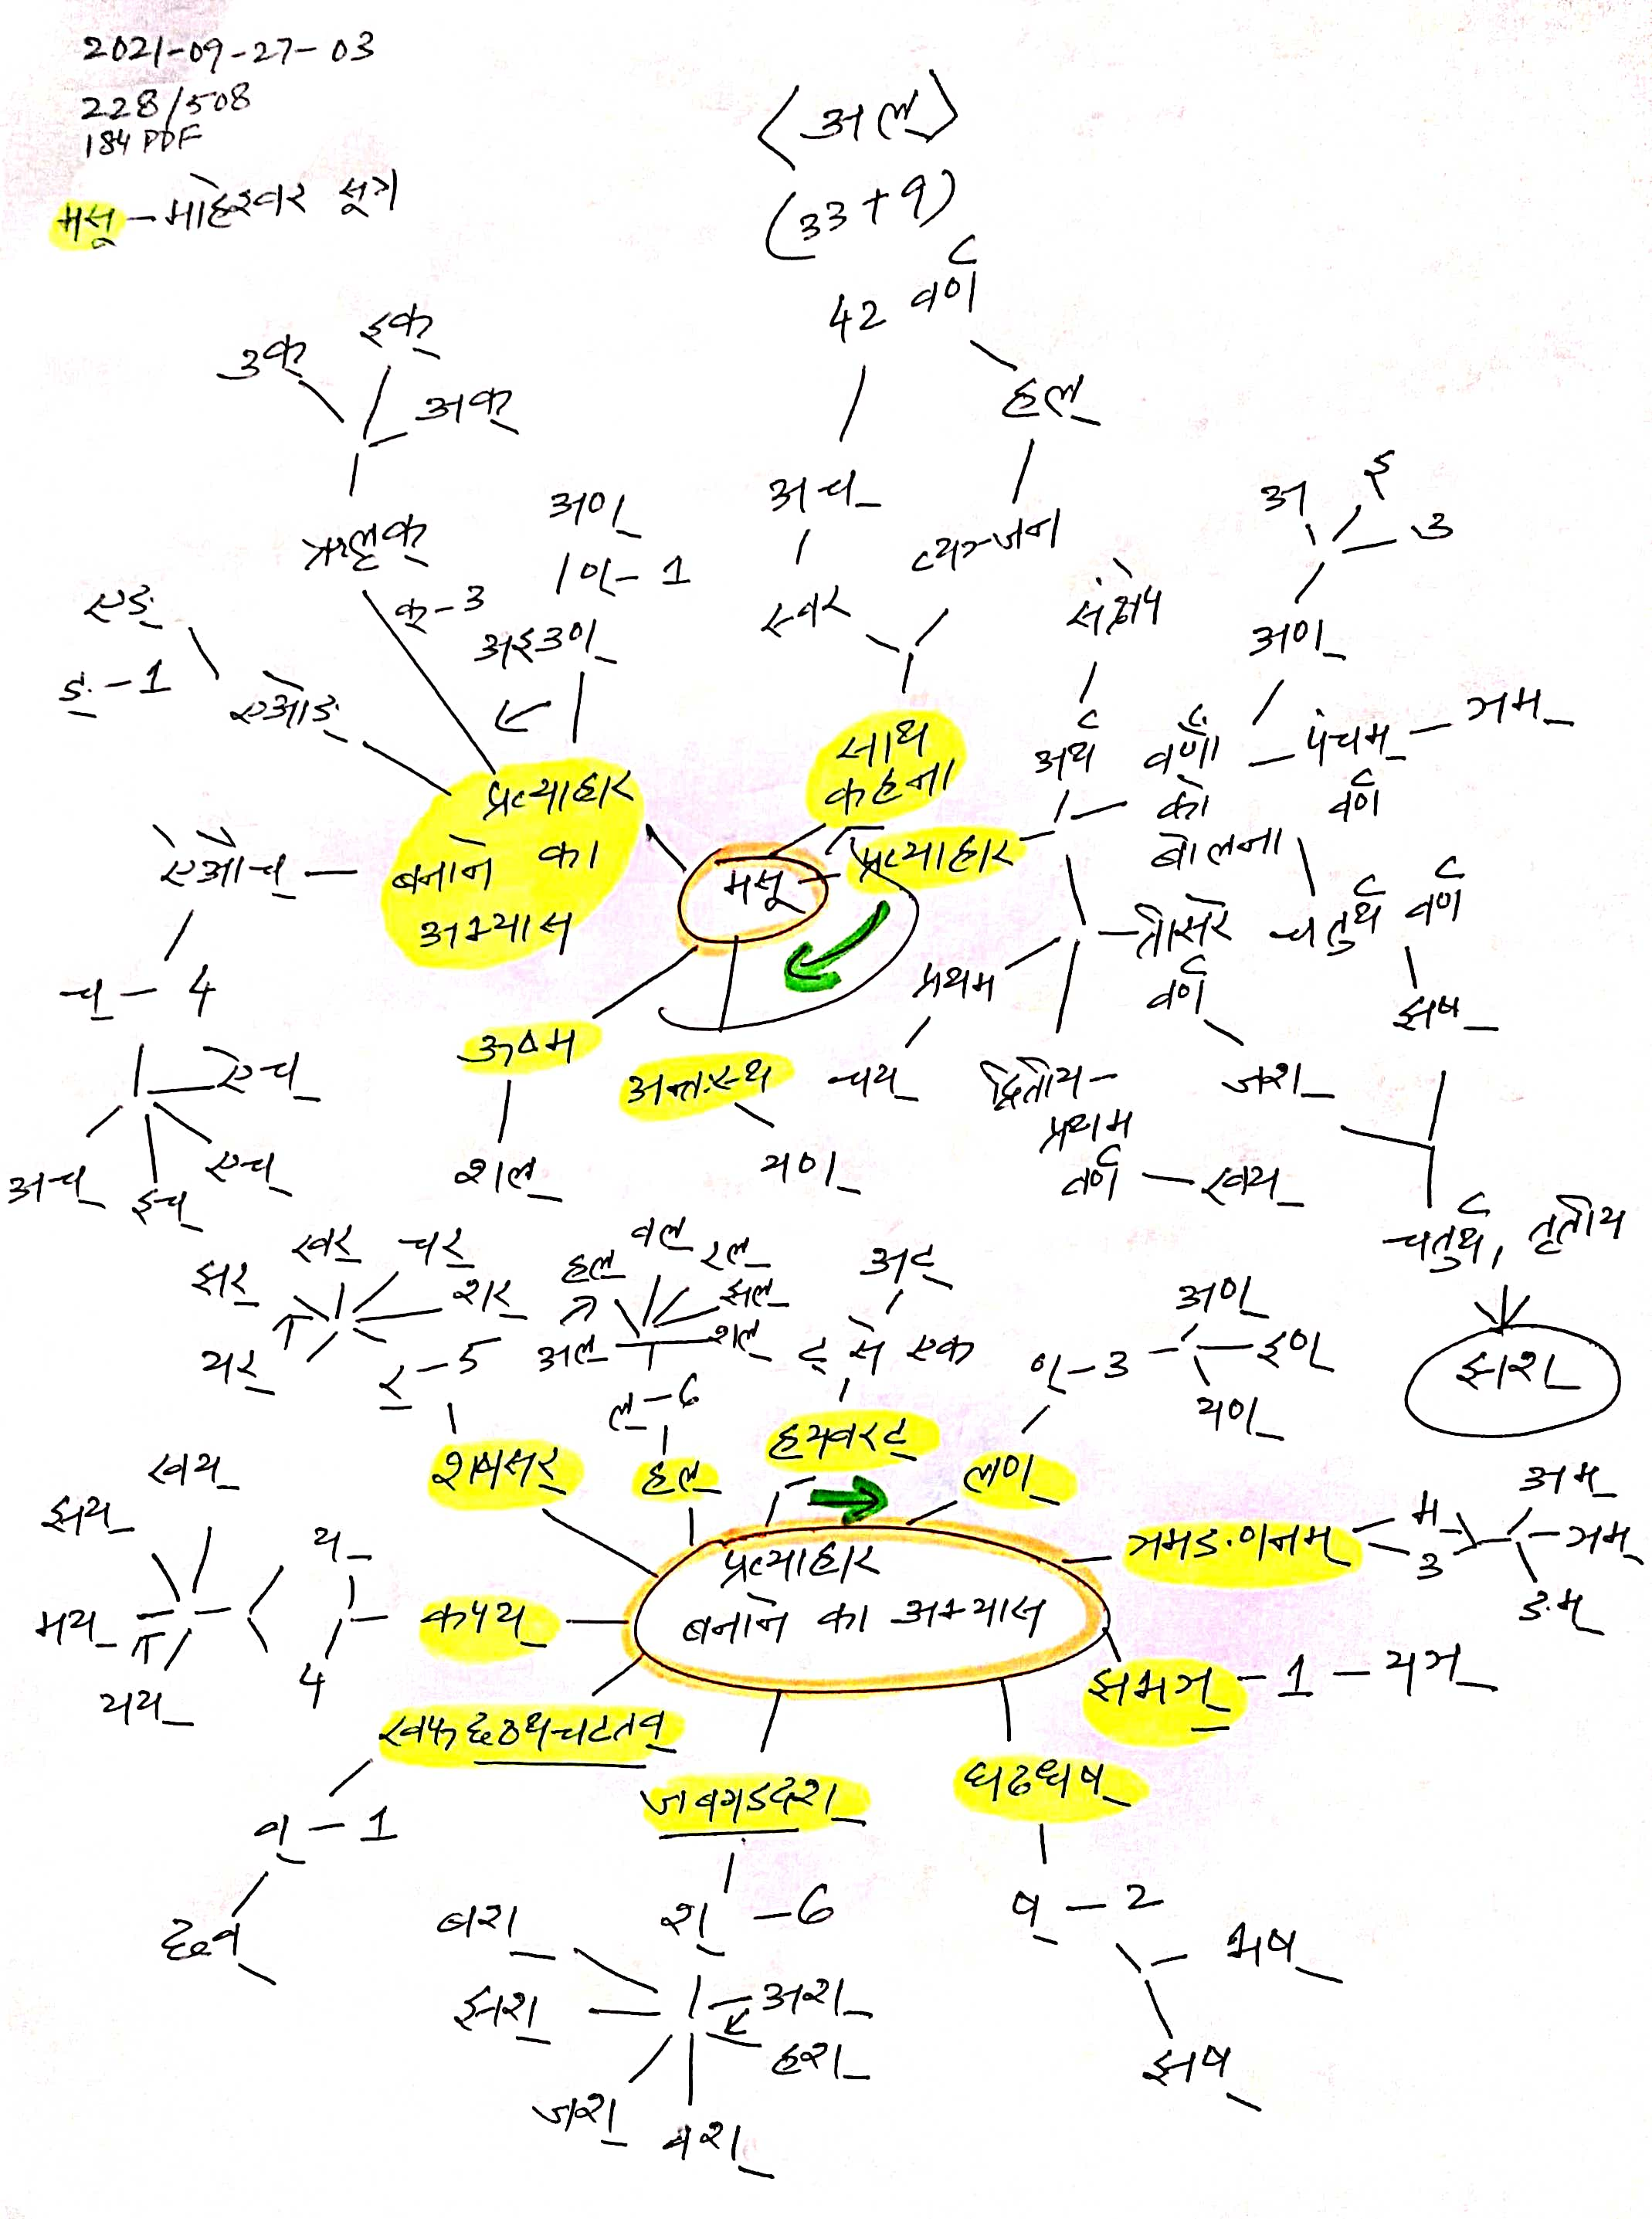 2021-09-27-03
228/508
184 PDF
मसू - माहेश्वर सूत्र
<अल्>
(33+9)
42 वर्ण
हल्
व्यञ्जन
अच्
स्वर
साथ
कहना
उक्
इक्
अक्
ऋलृक्
क् - 3
अण्
ण् - 1
अइउण्
एङ्
ङ् - 1
एओङ्
प्रत्याहार
बनाने का
अभ्यास
ऐऔच्
च् - 4
ऐच्
एच्
इच्
अच्
मसू
प्रत्याहार
संक्षेप
अर्थ
वर्णों
को
बोलना
अ
इ
उ
अण्
पंचम्
वर्ण
ञम्
चतुर्थ वर्ण
झष्
तीसरे
वर्ण
जश्
प्रथम
चय्
द्वितीय -
प्रथम
वर्ण - खय्
चतुर्थ, तृतीय
झश्
ऊष्म
शल्
अन्तःस्थ
यण्
झर्
खर्
चर्
शर्
यर्
र् - 5
शषसर्
हल्
वल्
रल्
झल्
शल्
अल्
ल् - 6
हल्
अट्
ट् से एक
हयवरट्
ण् - 3
अण्
इण्
यण्
लण्
प्रत्याहार
बनाने का अभ्यास
ञमङणनम्
म्
3
अम्
ञम्
ङम्
झभञ् - 1 - यञ्
घढधष्
ष् - 2
भष्
झष्
जबगडदश्
श् - 6
बश्
झश्
जश्
वश्
हश्
अश्
खफछठथचटतव्
व् - 1
छव्
कपय्
य्
4
खय्
झय्
मय्
यय्